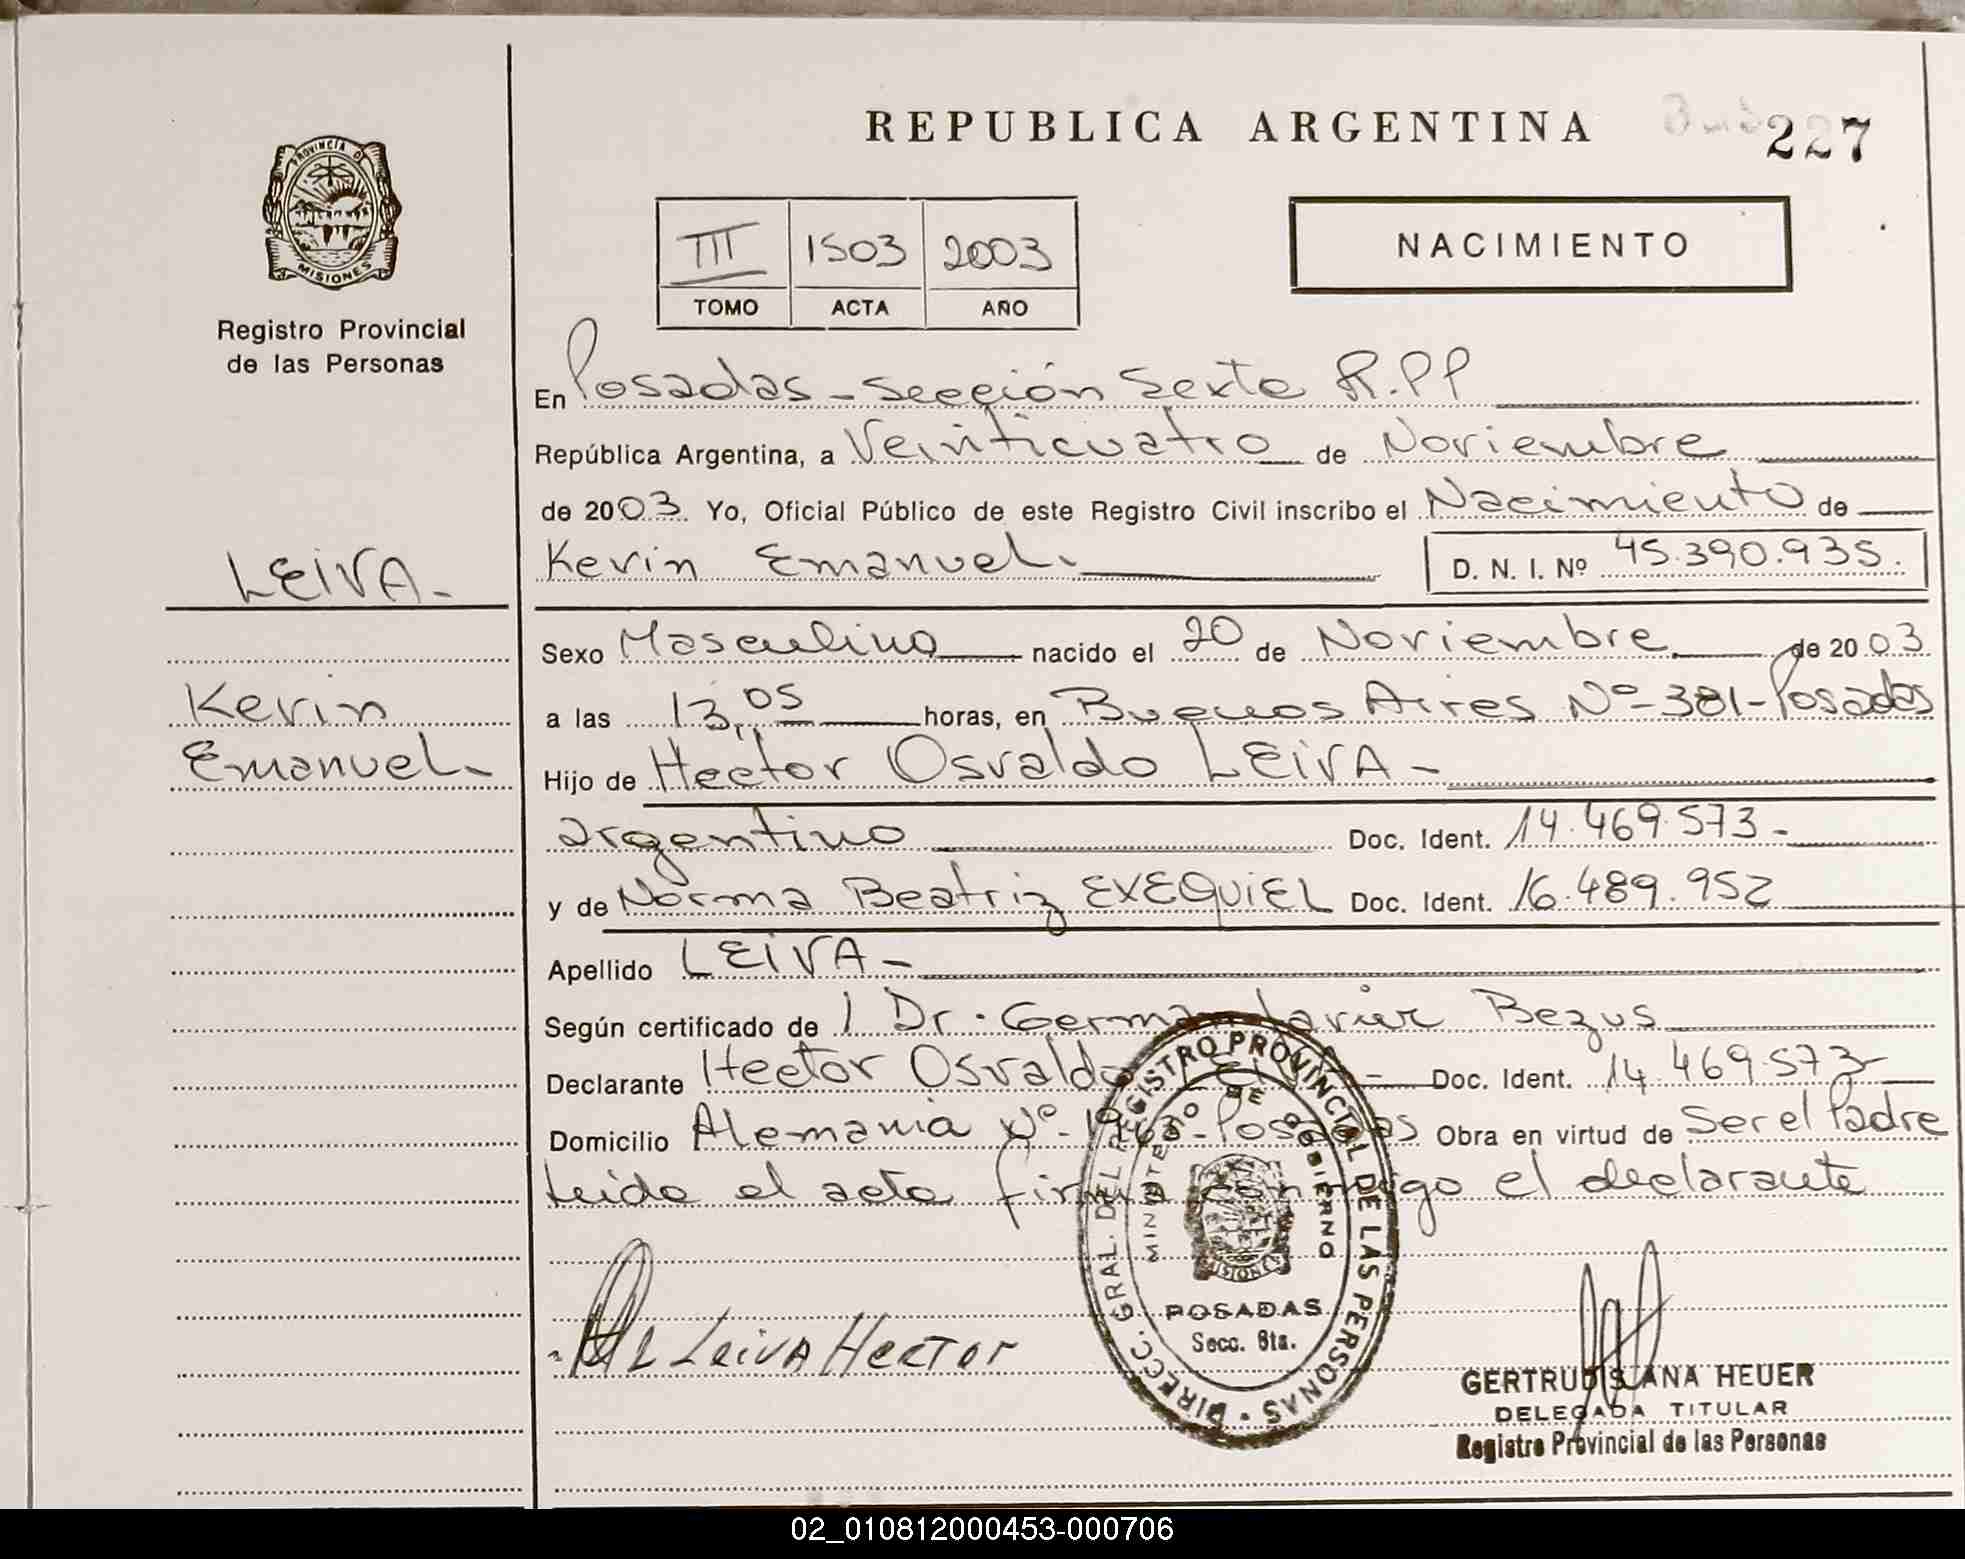 REPUBLICA ARGENTINA
227
PROVINCIA DE
MISIONES
Registro Provincial
de las Personas
III 1503 2003
TOMO ACTA AÑO
NACIMIENTO
En Posadas - Sección Sexta R.PP
República Argentina, a Veinticuatro de Noviembre
de 2003. Yo, Oficial Público de este Registro Civil inscribo el Nacimiento de
Kevin Emanuel. D. N. I. Nº 45.390.935.
LEIVA-
Kevin
Emanuel-
Sexo Masculino nacido el 20 de Noviembre de 2003
a las 13,05 horas, en Buenos Aires Nº-381-Posadas
Hijo de Hector Osvaldo LEIVA-
argentino Doc. Ident. 14.469.573-
y de Norma Beatriz EXEQUIEL Doc. Ident. 16.489.952
Apellido LEIVA-
Según certificado de Dr. German Javier Bezus
Declarante Hector Osvaldo LEIVA- Doc. Ident. 14.469.573-
Domicilio Alemania Nº- Posadas Obra en virtud de Ser el Padre
Leida el acta firma conmigo el declarante
DIRECC. GRAL. DEL REGISTRO PROVINCIAL DE LAS PERSONAS
MINISTERIO DE GOBIERNO
MISIONES
POSADAS
Secc. 6ta.
Leiva Hector
GERTRUDIS ANA HEUER
DELEGADA TITULAR
Registro Provincial de las Personas
02_010812000453-000706